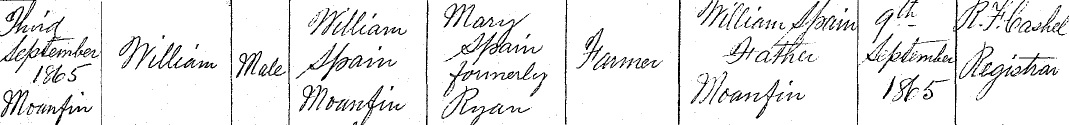 Third
September
1865
Moanfin
William
Male
William
Spain
Moanfin
Mary
Spain
formerly
Ryan
Farmer
William Spain
Father
Moanfin
9th
September
1865
R. F. Cashel
Registrar